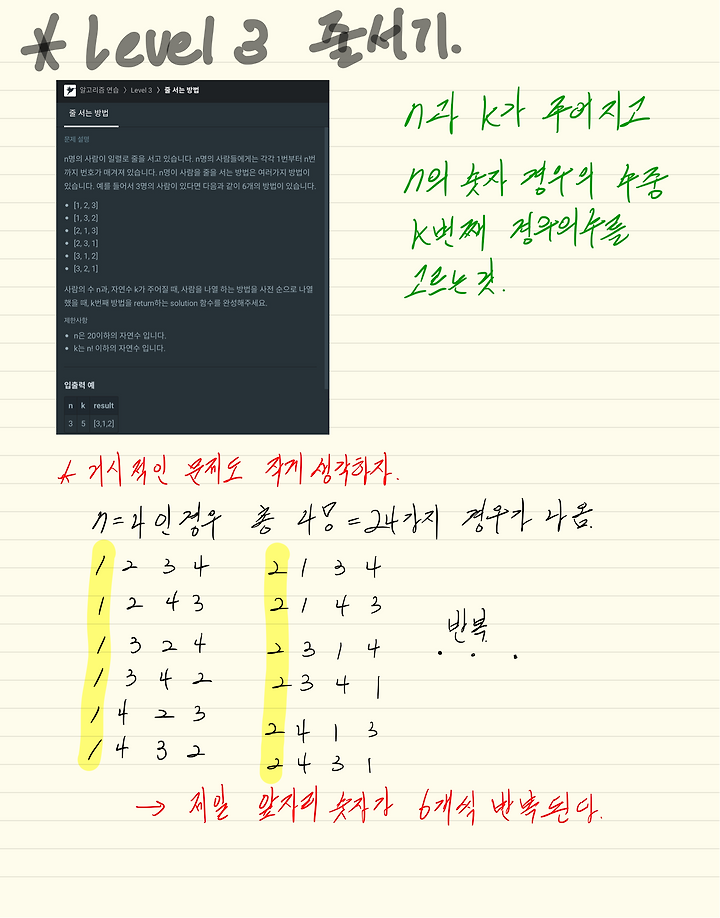 * Level 3 줄서기.
알고리즘 연습 > Level 3 > 줄 서는 방법
줄 서는 방법
문제 설명
n명의 사람이 일렬로 줄을 서고 있습니다. n명의 사람들에게는 각각 1번부터 n번
까지 번호가 매겨져 있습니다. n명이 사람을 줄을 서는 방법은 여러가지 방법이
있습니다. 예를 들어서 3명의 사람이 있다면 다음과 같이 6개의 방법이 있습니다.
• [1, 2, 3]
• [1, 3, 2]
• [2, 1, 3]
• [2, 3, 1]
• [3, 1, 2]
• [3, 2, 1]
사람의 수 n과, 자연수 k가 주어질 때, 사람을 나열 하는 방법을 사전 순으로 나열
했을 때, k번째 방법을 return하는 solution 함수를 완성해주세요.
제한사항
• n은 20이하의 자연수 입니다.
• k는 n! 이하의 자연수 입니다.
입출력 예
n k result
3 5 [3,1,2]
n과 k가 주어지고
n의 숫자 경우의 수중
k번째 경우의수를
고르는것.
* 거시적인 문제도 작게생각하자.
n=4인경우 총 4!=24가지 경우가 나옴.
1 2 3 4 2 1 3 4
1 2 4 3 2 1 4 3
반복
1 3 2 4 2 3 1 4 . . .
1 3 4 2 2 3 4 1
1 4 2 3 2 4 1 3
1 4 3 2 2 4 3 1
→ 제일 앞자리 숫자가 6개씩 반복된다.